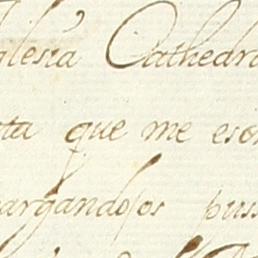 glesia Cathedra
ta que me escr
argandosos puss